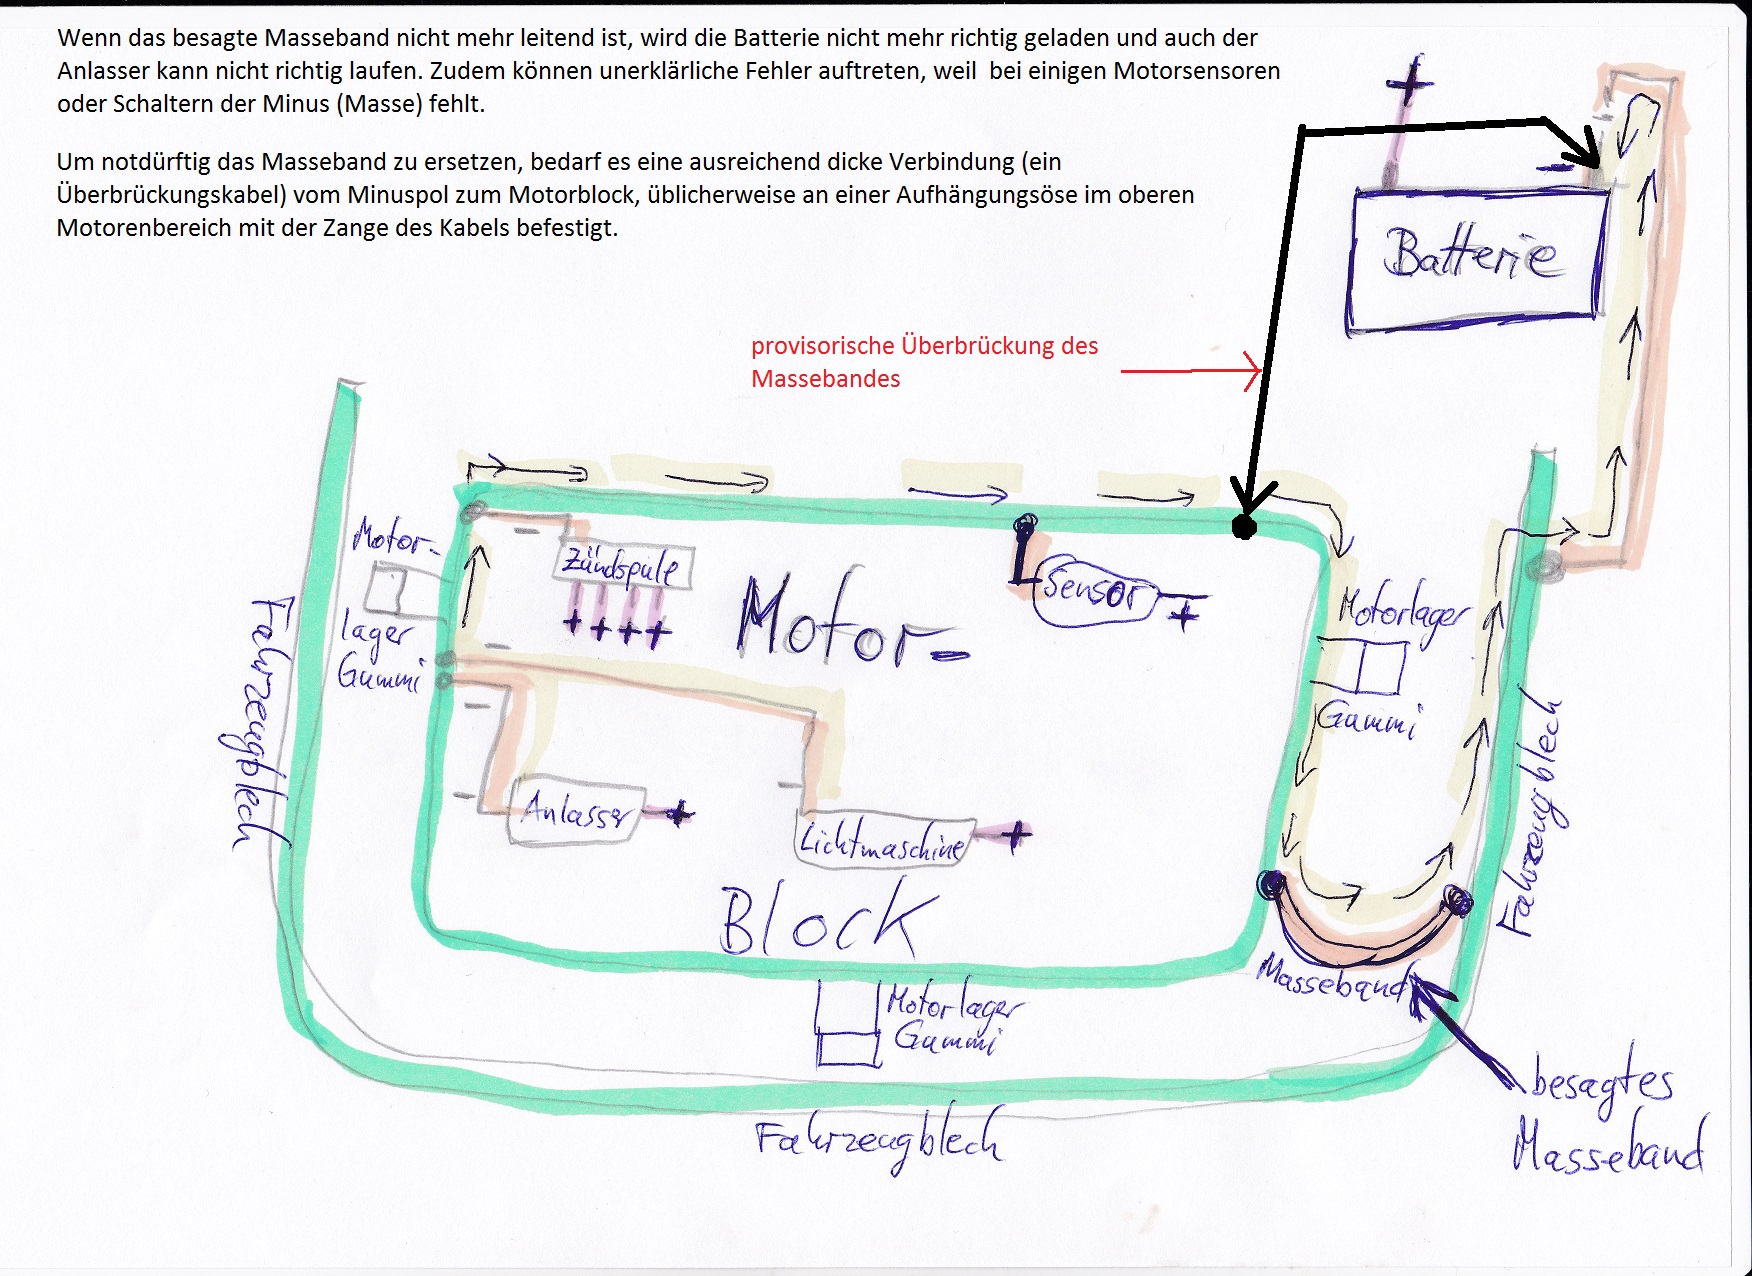 Wenn das besagte Masseband nicht mehr leitend ist, wird die Batterie nicht mehr richtig geladen und auch der
Anlasser kann nicht richtig laufen. Zudem können unerklärliche Fehler auftreten, weil bei einigen Motorsensoren
oder Schaltern der Minus (Masse) fehlt.
Um notdürftig das Masseband zu ersetzen, bedarf es eine ausreichend dicke Verbindung (ein
Überbrückungskabel) vom Minuspol zum Motorblock, üblicherweise an einer Aufhängungsöse im oberen
Motorenbereich mit der Zange des Kabels befestigt.
+
-
Batterie
provisorische Überbrückung des
Massebandes
Motor-
lager
Gummi
-
Zündspule
+ + + +
Motor-
Sensor
+
Motorlager
Gummi
-
-
-
-
Anlasser +
Lichtmaschine +
Block
Fahrzeugblech
Fahrzeugblech
Masseband
Motorlager
Gummi
Fahrzeugblech
besagtes
Masseband